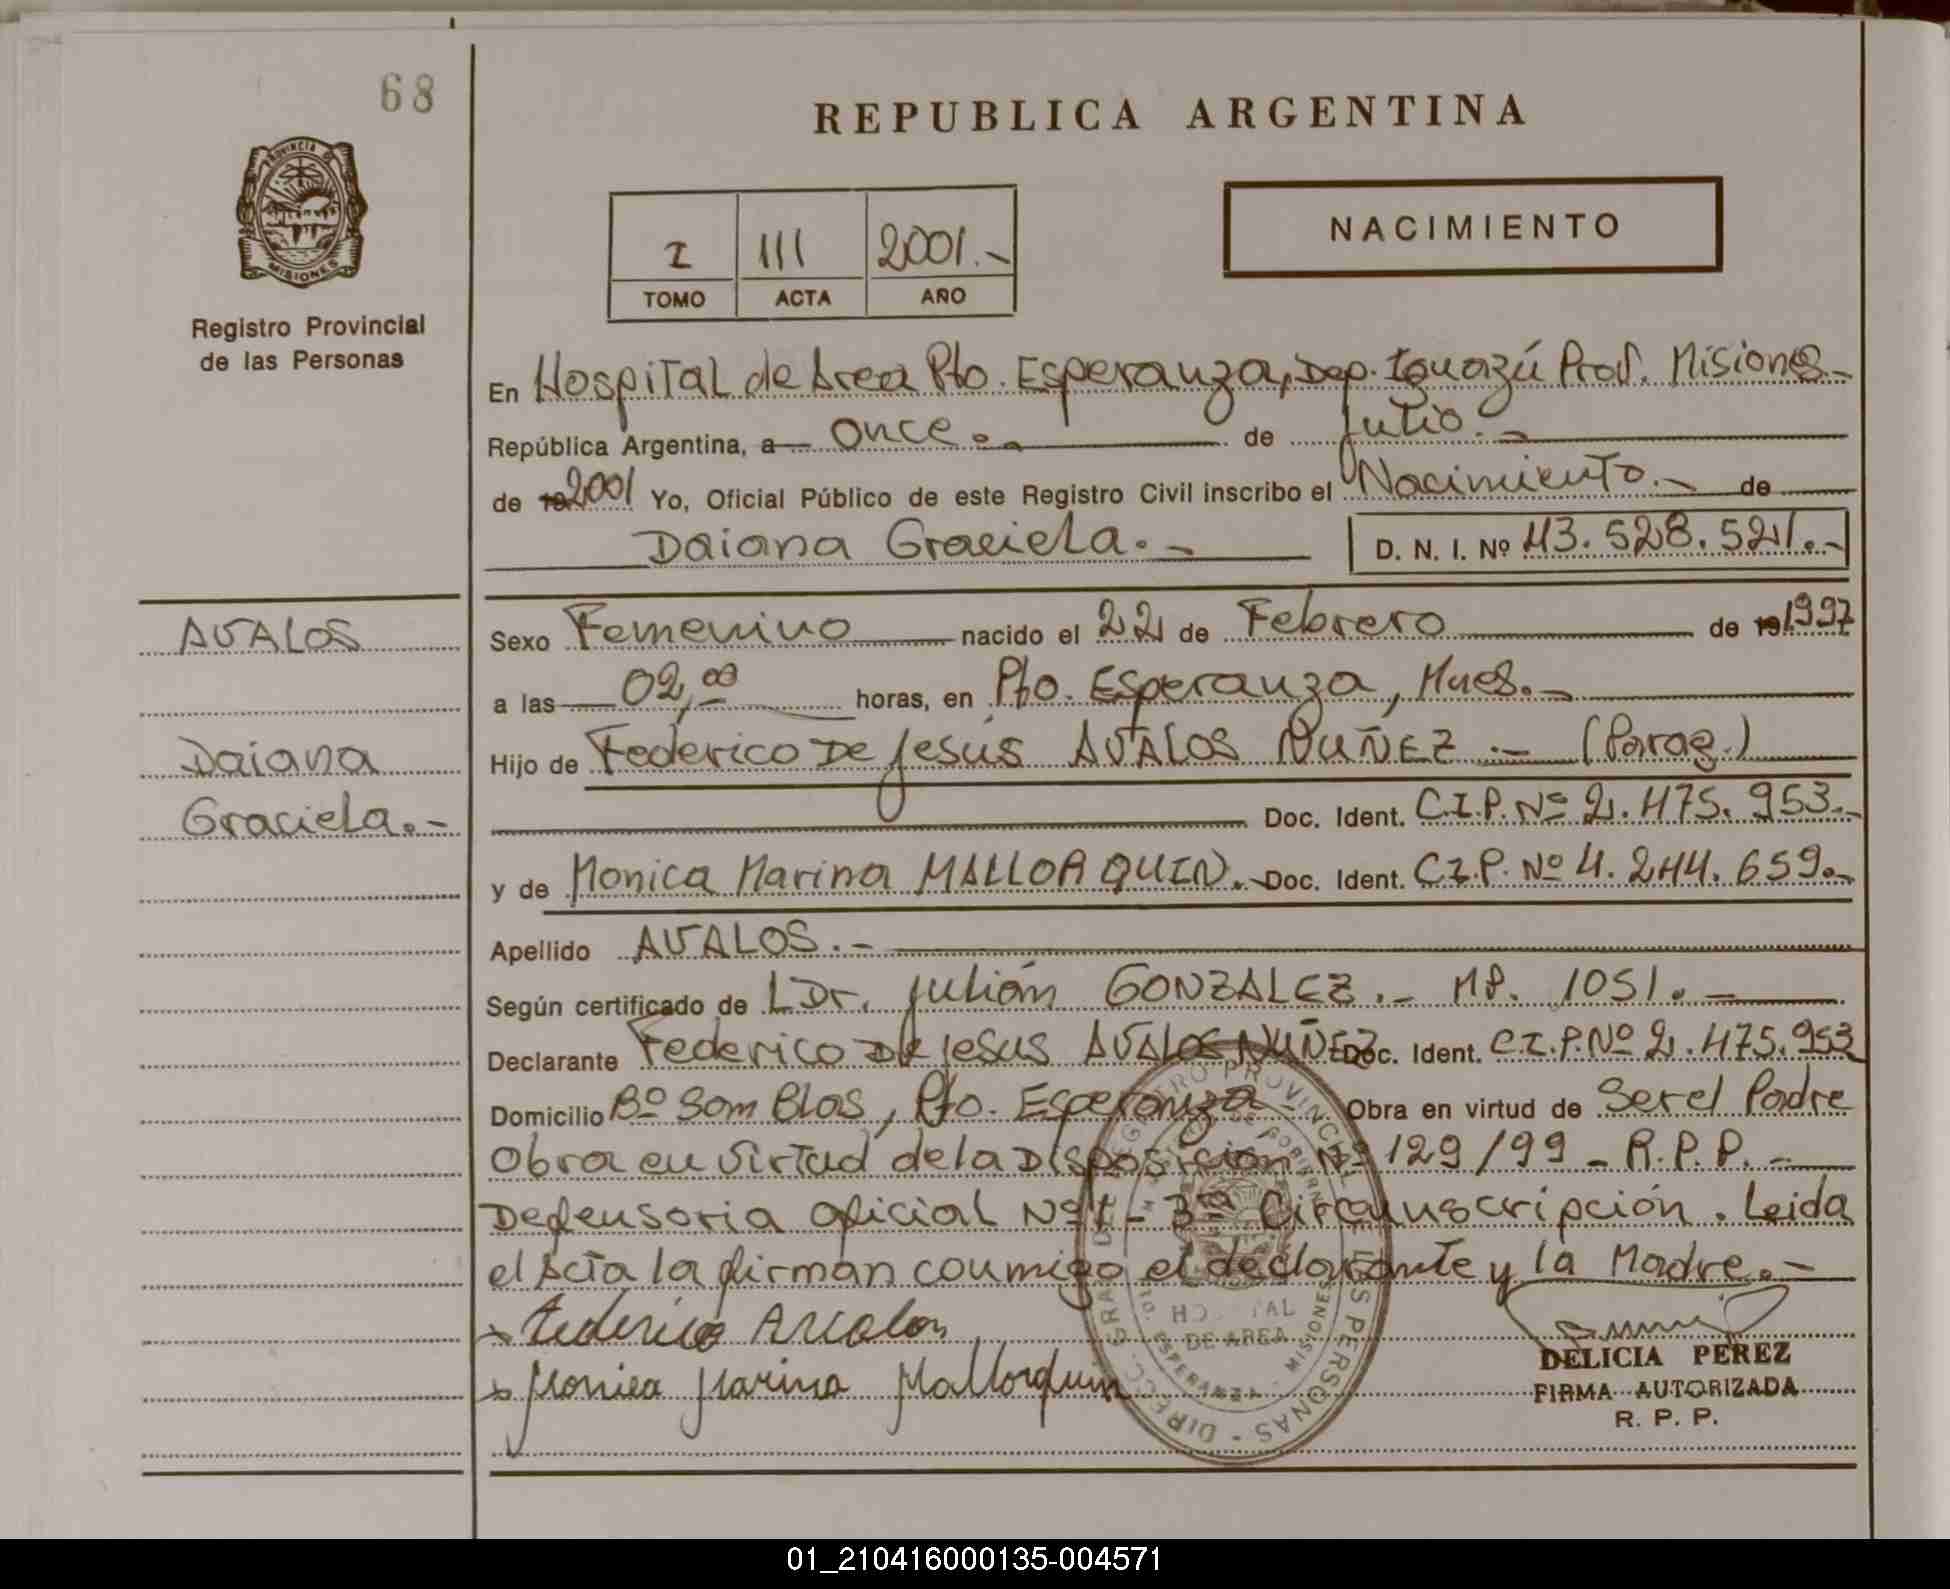 68
REPUBLICA ARGENTINA
PROVINCIA DE
MISIONES
Registro Provincial
de las Personas
I 111 2001.-
TOMO ACTA AÑO
NACIMIENTO
En Hospital de Area Pto. Esperanza, Dep. Iguazú Prov. Misiones.-
República Argentina, a once.- de Julio.-
de 192001 Yo, Oficial Público de este Registro Civil inscribo el Nacimiento.- de
Daiana Graciela.- D. N. I. Nº 43.528.521.-
AVALOS
Sexo Femenino nacido el 22 de Febrero de 191997
a las 02,00 horas, en Pto. Esperanza, Mnes.-
Daiana
Hijo de Federico De Jesús AVALOS NUÑEZ.- (Parag.)
Graciela.-
Doc. Ident. C.I.P. Nº 2.475.953.-
y de Monica Marina MALLORQUIN.- Doc. Ident. C.I.P. Nº 4.244.659.-
Apellido AVALOS.-
Según certificado de LDr. Julián GONZALEZ.- MP. 1051.-
Declarante Federico De Jesus AVALOS NUÑEZ Doc. Ident. C.I.P. Nº 2.475.953
Domicilio Bº San Blas, Pto. Esperanza Obra en virtud de Ser el Padre
Obra en virtud de la Disposición Nº 129/99 - R.P.P.-
Defensoria oficial Nº 1 - 3ra Circunscripción. Leida
el Acta la firman conmigo el declarante y la Madre.-
Federico Avalos
Monica Marina Mallorquin
DIRECC. GRAL. DEL REGISTRO PROVINCIAL DE LAS PERSONAS
HOSPITAL
DE AREA
PTO. ESPERANZA - MISIONES
DELICIA PEREZ
FIRMA AUTORIZADA
R. P. P.
01_210416000135-004571